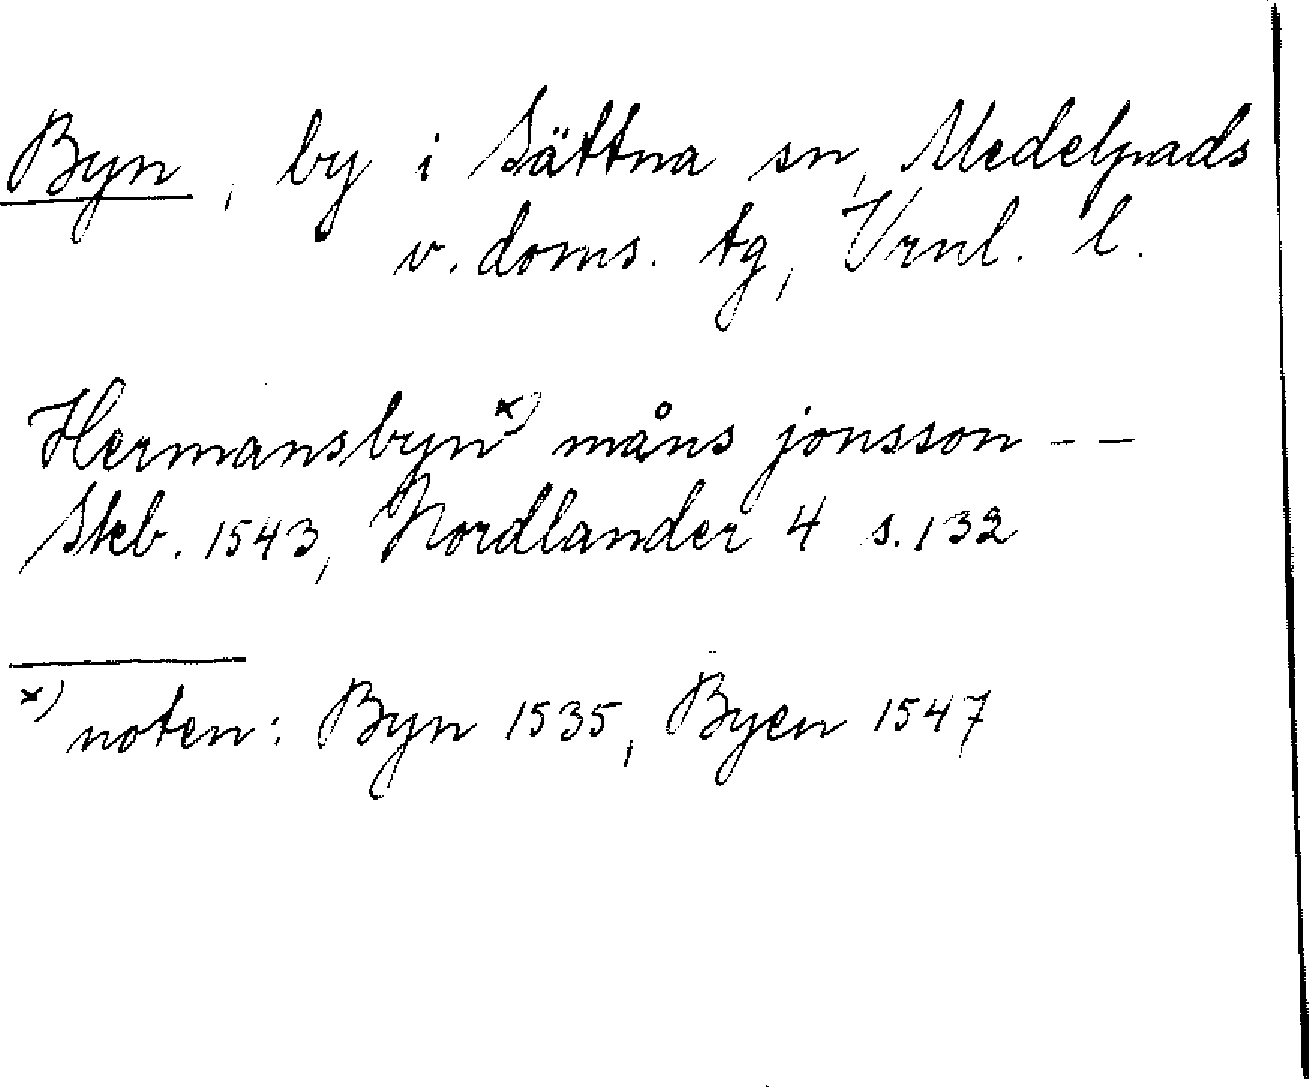 Byn, by i Sättna sn, Medelpads
v. doms. tg, Vrnl. l.
Hermansbyn x) måns jonsson - -
Skb. 1543, Nordlander 4 s. 132
x) noten: Byn 1535, Byen 1547